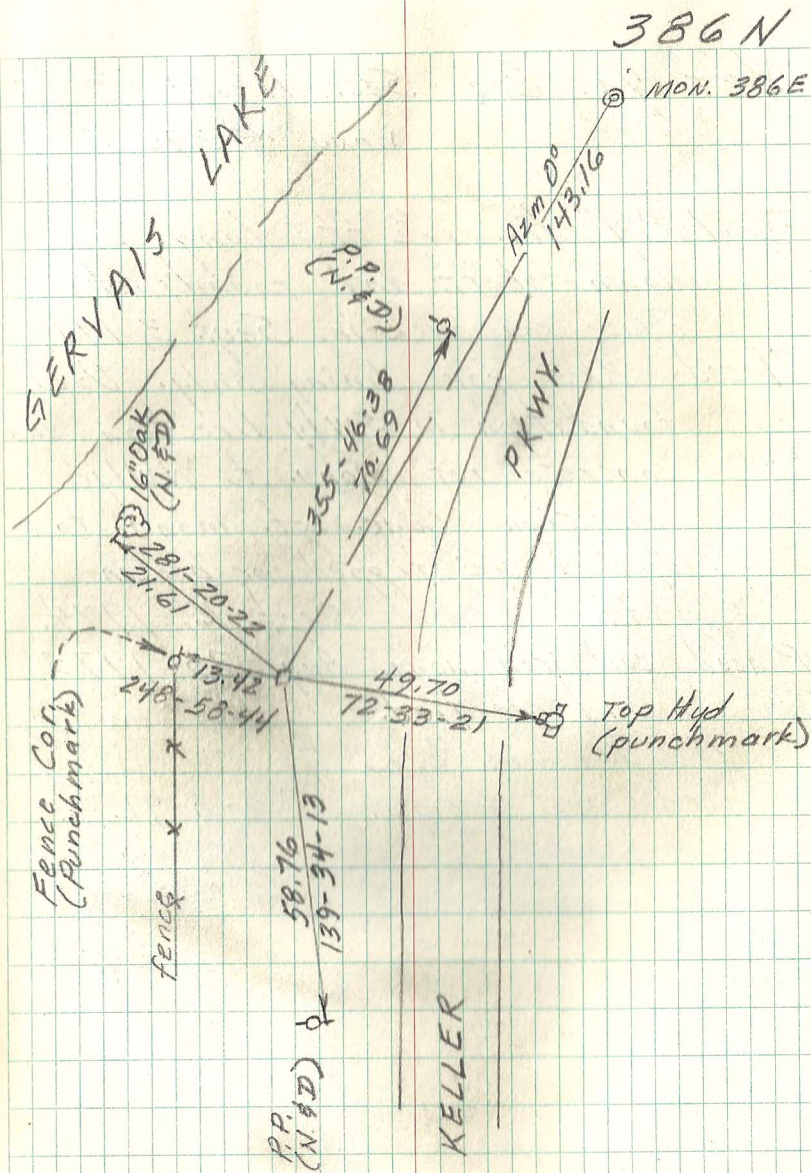 386 N
MON. 386E
GERVAIS LAKE
Azm 0°
143.16
P.P.
(N. & D.)
355-46-38
70.69
PKWY.
16" Oak
(N. & D)
281-20-22
21.91
Fence Cor.
(Punchmark)
13.42
248-58-44
49.70
72-33-21
Top Hyd
(punchmark)
fence
58.76
139-34-13
P.P.
(N. & D)
KELLER